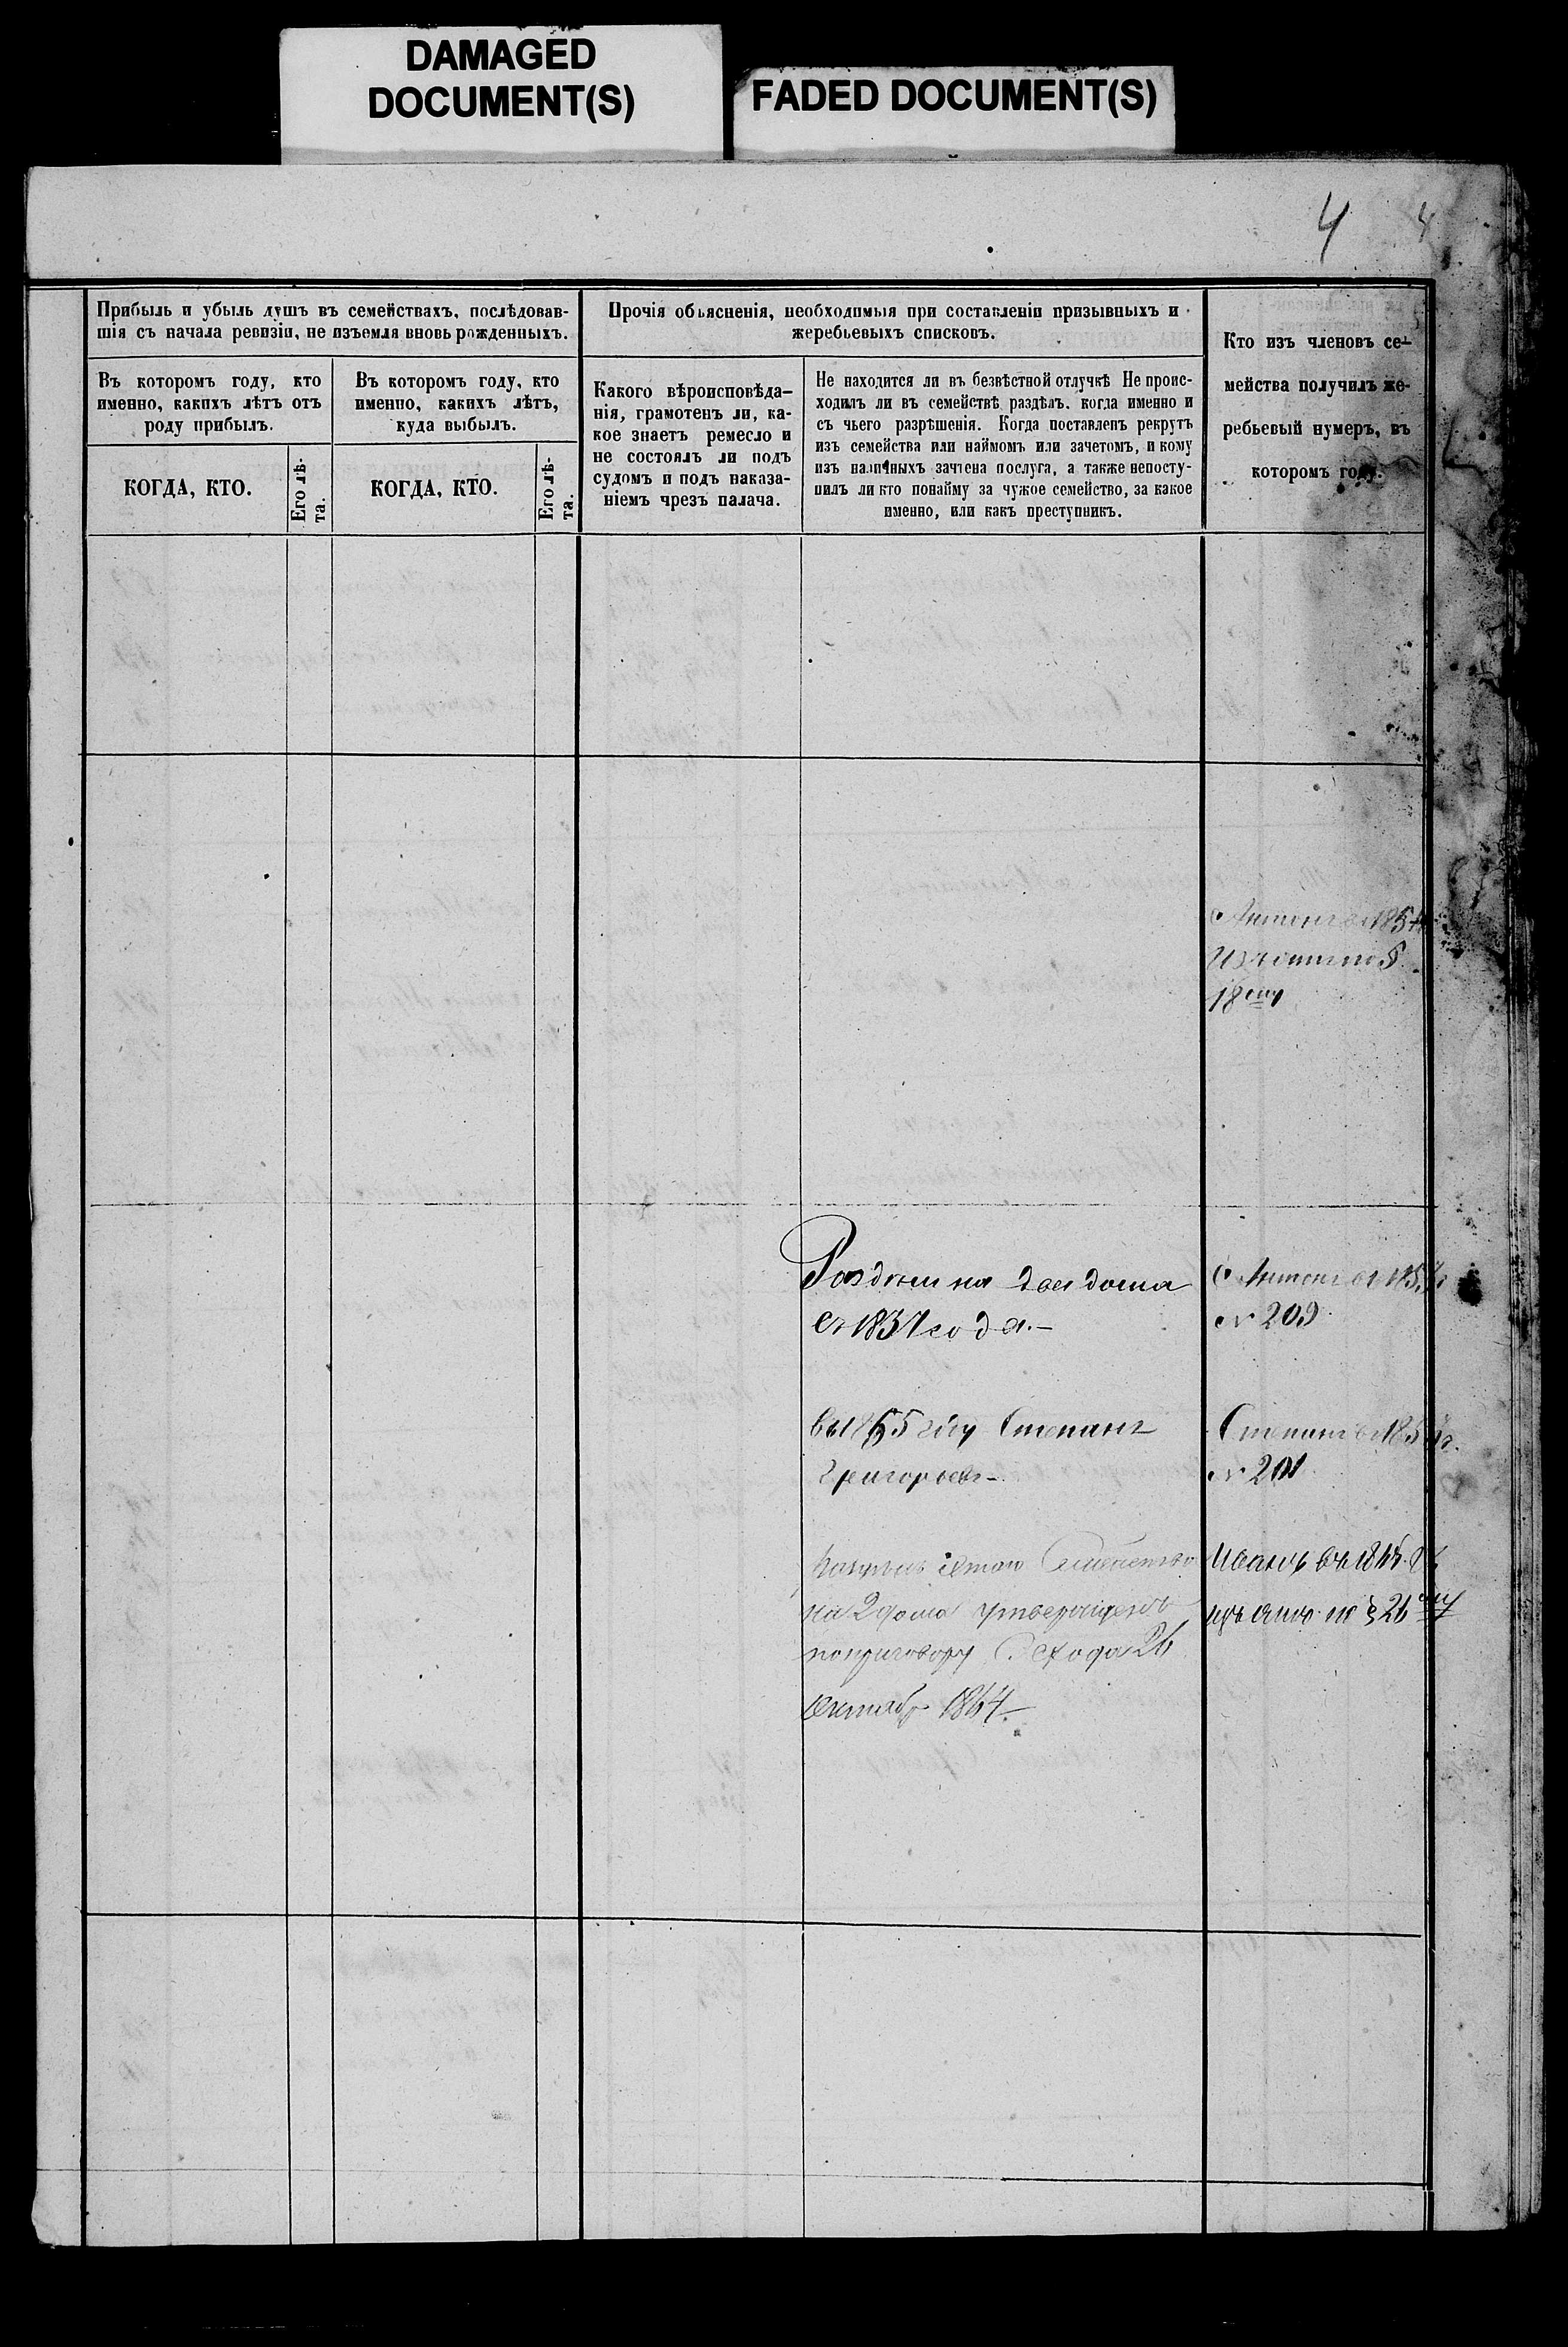 DAMAGED
DOCUMENT(S)
FADED DOCUMENT(S)
4
4
Прибыль и убыль душъ въ семействахъ, послѣдовав-
шія съ начала ревизіи, не изъемля вновь рожденныхъ.
Въ которомъ году, кто
именно, какихъ лѣтъ отъ
роду прибылъ.
КОГДА, КТО.
Его лѣ-
та.
Въ которомъ году, кто
именно, какихъ лѣтъ,
куда выбылъ.
КОГДА, КТО.
Его лѣ-
та.
Прочія объясненія, необходимыя при составленіи призывныхъ и
жеребьевыхъ списковъ.
Какого вѣроисповѣда-
нія, грамотенъ ли, ка-
кое знаетъ ремесло и
не состоялъ ли подъ
судомъ и подъ наказа-
ніемъ чрезъ палача.
Не находится ли въ безвѣстной отлучкѣ Не проис-
ходилъ ли въ семействѣ раздѣлъ. когда именно и
съ чьего разрѣшенія. Когда поставленъ рекрутъ
изъ семейства или наймомъ или зачетомъ, и кому
изъ наличныхъ зачтена послуга, а также непосту-
пилъ ли кто понайму за чужое семейство, за какое
именно, или какъ преступникъ.
Кто изъ членовъ се-
мейства получилъ же-
ребьевый нумеръ, въ
которомъ году.
Антонъ въ 1854
18
Раздѣлъ на два дома
съ 1857 года.—
Антонъ въ
№ 209
въ 1855 году Степанъ
Григорьевъ—
Степанъ въ 185
№ 201
семейство
на 2 дома утвержденъ
поприговору Схода 26
Октября 1864.
Иванъ въ
26